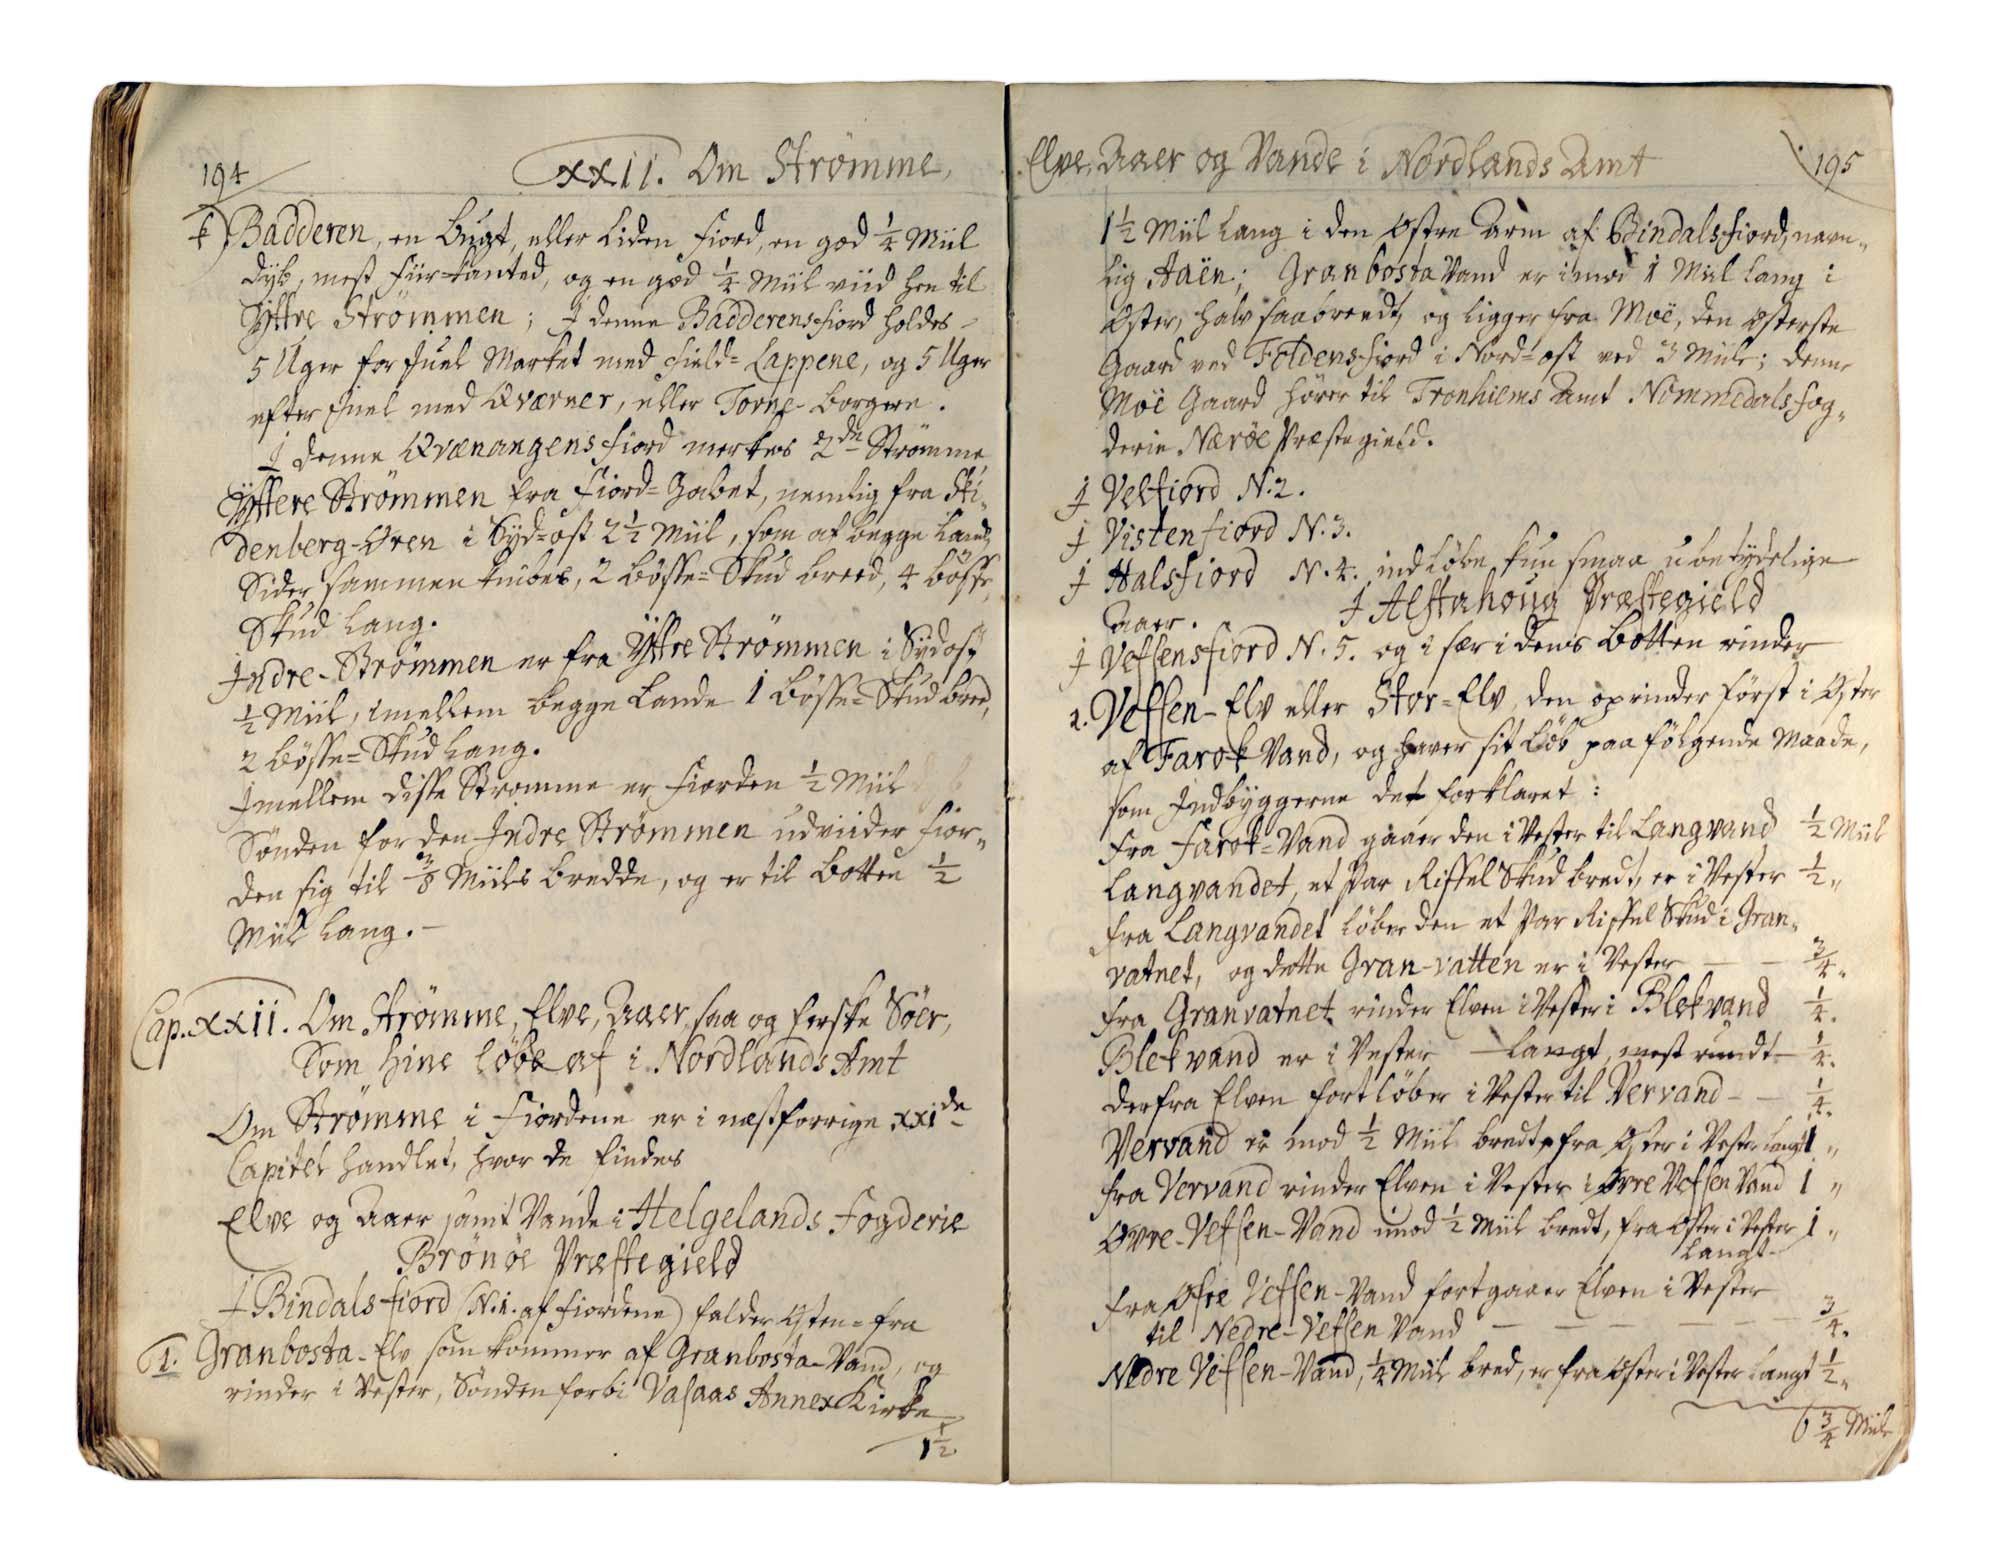 194
XXII. Om Strømme,
f) Badderen, en Bugt, eller Liden Fiord, en god 1/4 Miil
dyb, mest Fiir-kanted, og en god 1/4 Miil viid hen til
Yttre Strømmen; J denne Badderens fiord holdes
5 Uger for Juel Market med Field=Lappene, og 5 Uger
efter Juel med Qværner, eller Torne-borgere.
J denne Qvænangens fiord merkes 2de Strømme
Yttere Strømmen fra Fiord=Gabet, nemlig fra Ski-
denberg-Øren i Syd=ost 2 1/2 Miil, som af begge Lands
Sider sammen knibes, 2 Bøsse=Skud breed, 4 Bøsse
Skud Lang.
Jndre-Strømmen er fra Yttre Strømmen i Sydost
1/2 Miil, imellem begge Lande 1 Bøsse=Skud bred,
2 Bøsse=Skud Lang.
Jmellem disse Strømme er Fiorden 1/2 Miil
Sønden for den Jndre Strømmen udviider Fior-
den sig til 3/8 Miils bredde, og er til Botten 1/2
Miil Lang.-
Cap. XXII. Om Strømme, Elve, Aaer, saa og ferske Søer,
Som hine løbe af i Nordlands Amt
Om Strømme i Fiordene er i næstforrige XXIde
Capitel handlet, hvor de findes
Elve og Aaer samt Vande i Helgelands Fogderie
Brønøe Præstegield
J Bindals fiord (N.1. af Fiordene) falder Østen=fra
1. Granbosta-Elv som kommer af Granbosta-Vand, og
rinder i Vester, Sønden forbi Vasaas Annex Kirke
1 1/2
Elve, Aaer og Vande i Nordlands Amt
195
1 1/2 Miil Lang i den Østre Arm af Bindalsfiord, navn-
lig Aaën; Granbosta Vand er imod 1 Miil Lang i
Øster, halv saa breedt, og ligger fra Moë, den Østerste
Gaard ved Foldens fiord i Nord=ost ved 3 Miile; denne
Moë Gaard hører til Tronhiems Amt Nommedals fog-
derie Nærøe Præstegield.
J Velfiord N.2.
J Visten fiord N.3.
J Halsfiord N.4. indløbe kun smaa ubetydelige
Aaer. J Alstahoug Præstegield
J Vefsensfiord N.5. og i sær i dens Botten rinder
2. Vefsen-Elv eller Stor=Elv, den oprinder først i Øster
af Farok Vand, og haver sit Løb paa følgende Maade,
som Jndbyggerne det forklaret:
Fra Farok=Vand gaaer den i Vester til Langvand 1/2 Miil
Langvandet, et Par Riffel Skud bredt, er i Vester 1/2 "
Fra Langvandet løber den et Par Riffel Skud i Gran-
vatnet, og dette Gran-vatten er i Vester - - 3/4 "
Fra Granvatnet rinder Elven i Vester i Blekvand 1/4.
Blekvand er i Vester - Langt, mest rundt - 1/4.
Derfra Elven fortløber i Vester til Vervand - - 1/4.
Vervand er mod 1/2 Miil bredt, fra Øster i Vester langt 1 "
Fra Vervand rinder Elven i Vester i Øvre Vefsen Vand 1 "
Øvre-Vefsen-Vand imod 1/2 Miil bredt, fra Øster i Vester 1 "
Langt-
Fra Øfre Vefsen-Vand fortgaaer Elven i Vester
til Nedre-Vefsen Vand - - - - - - 3/4.
Nedre Vefsen-Vand, 1/4 Miil bred, er fra Øster i Vester Langt 1/2 "
6 3/4 Miile